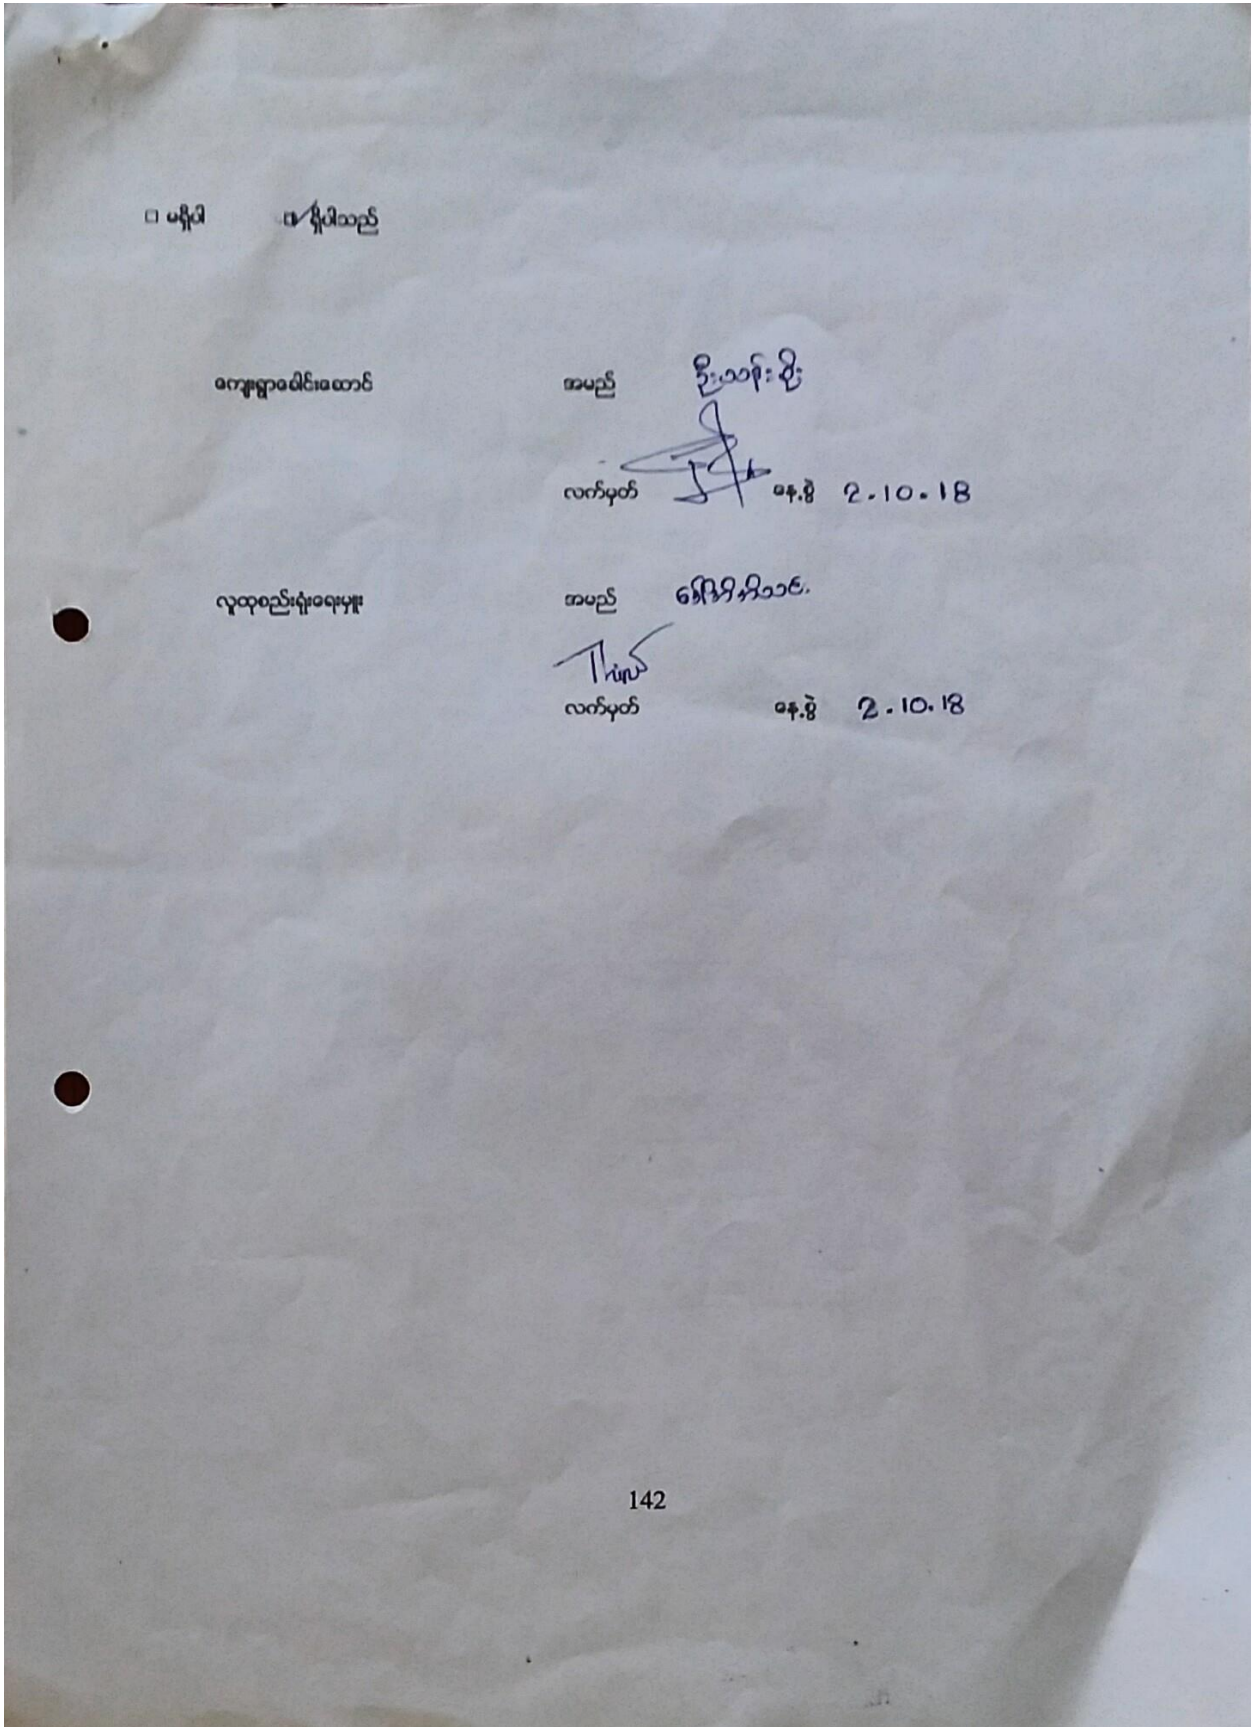 □ မရှိပါ ☑ ရှိပါသည်
ကျေးရွာခေါင်းဆောင် အမည် ဦးသန်းစိုး
လက်မှတ် နေ့စွဲ 2.10.18
လူထုစည်းရုံးရေးမှူး အမည်
လက်မှတ် နေ့စွဲ 2.10.18
142